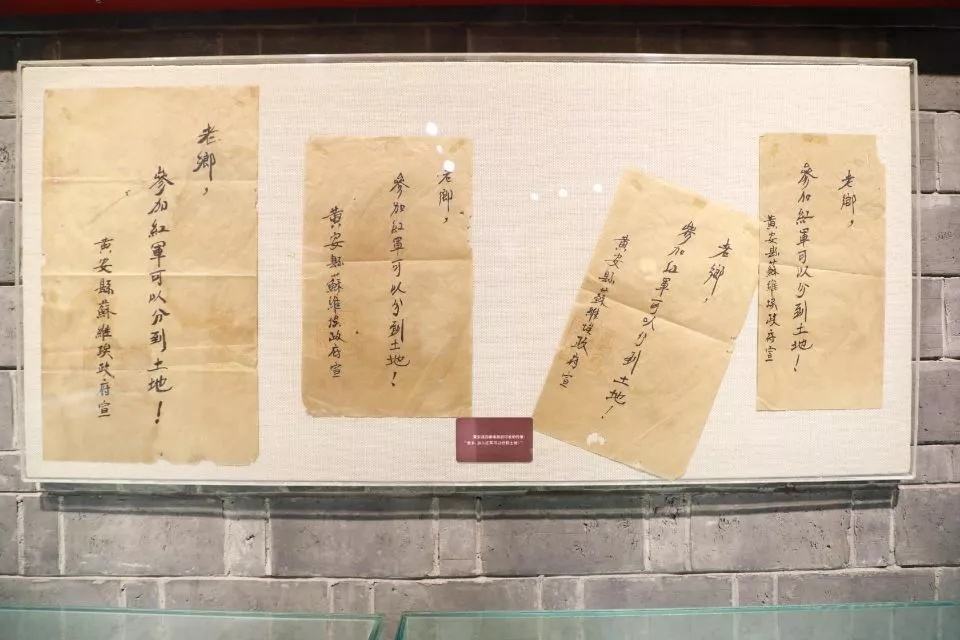 老鄉，
參加紅軍可以分到土地！
黄安縣蘇維埃政府宣
老鄉，
參加紅軍可以分到土地！
黄安縣蘇維埃政府宣
老鄉，
參加紅軍可以分到土地！
黄安縣蘇維埃政府宣
老鄉，
參加紅軍可以分到土地！
黄安縣蘇維埃政府宣